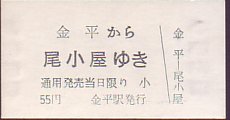 金平から
尾小屋ゆき
通用発売当日限り 小
55円 金平駅発行
金平―尾小屋